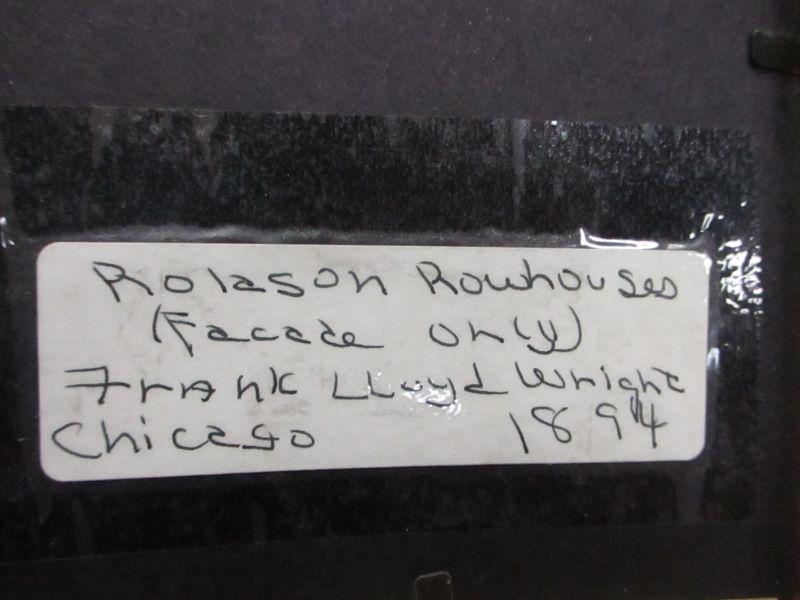 Rolason Rowhouses
(Facade only)
Frank LLoyd Wright
Chicago 1894